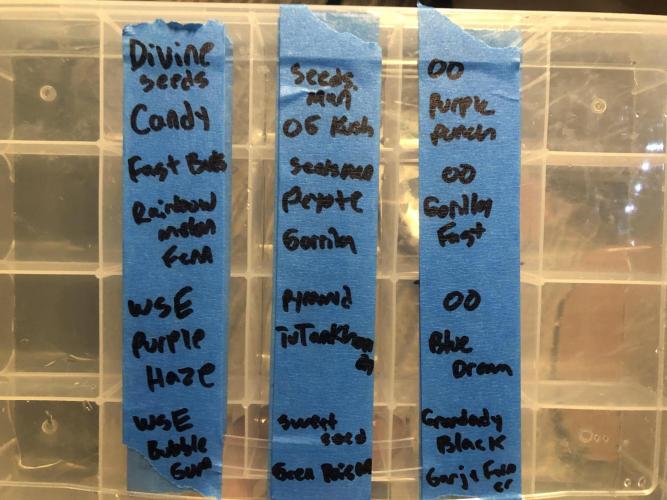 Divine
seeds
Candy
Fast Buds
Rainbow
melon
Fem
WSE
Purple
Haze
WSE
Bubble
Gum
Seeds
man
OG Kush
seedsman
Peyote
Gorrila
Pyramid
TuTankhamon
sweet
seed
Green Poison
00
Purple
Punch
00
Gorilla
Fast
00
Blue
Dream
Grandady
Black